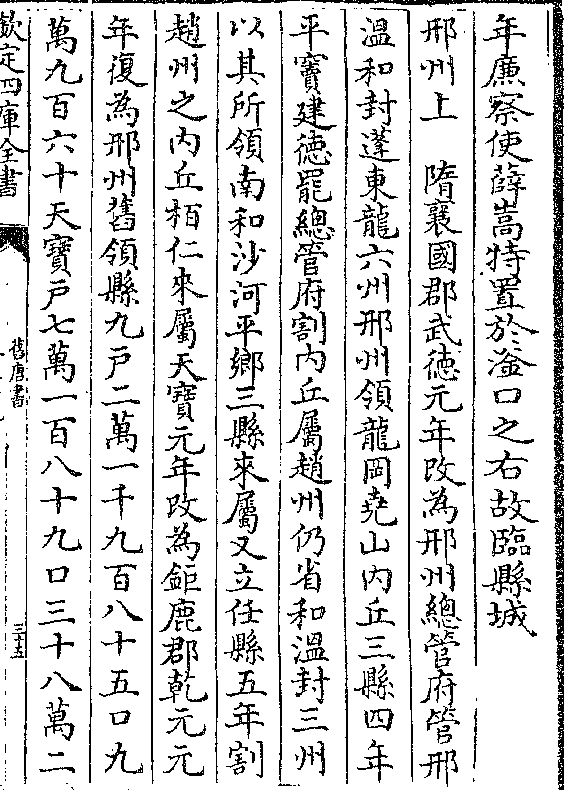 年廉察使薛嵩特置於滏口之右故臨縣城
邢州上　隋襄國郡武徳元年改為邢州總管府管邢
溫和封蓬東龍六州邢州領龍岡堯山内丘三縣四年
平竇建徳罷總管府割内丘屬趙州仍省和溫封三州
以其所領南和沙河平鄉三縣來屬又立任縣五年割
趙州之内丘栢仁來屬天寶元年改為鉅鹿郡乾元元
年復為邢州舊領縣九戸二萬一千九百八十五口九
萬九百六十天寶戸七萬一百八十九口三十八萬二
欽定四庫全書
舊唐書
三十五